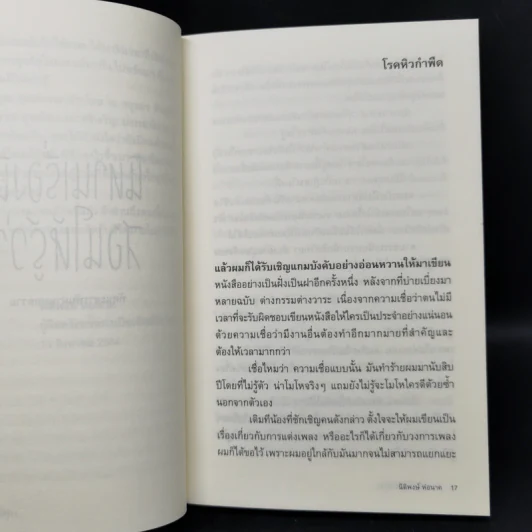 โรคหิวกำพืด
แล้วผมก็ได้รับเชิญแกมบังคับอย่างอ่อนหวานให้มาเขียน
หนังสืออย่างเป็นฝั่งเป็นฝาอีกครั้งหนึ่ง หลังจากที่บ่ายเบี่ยงมา
หลายฉบับ ต่างกรรมต่างวาระ เนื่องจากความเชื่อว่าตนไม่มี
เวลาที่จะรับผิดชอบเขียนหนังสือให้ใครเป็นประจำอย่างแน่นอน
ด้วยความเชื่อว่ามีงานอื่นต้องทำอีกมากมายที่สำคัญและ
ต้องให้เวลามากกว่า
เชื่อไหมว่า ความเชื่อแบบนั้น มันทำร้ายผมมานับสิบ
ปีโดยที่ไม่รู้ตัว น่าโมโหจริงๆ แถมยังไม่รู้จะโมโหใครดีด้วยซ้ำ
นอกจากตัวเอง
เดิมทีน้องที่ชักเชิญคนดังกล่าว ตั้งใจจะให้ผมเขียนเป็น
เรื่องเกี่ยวกับการแต่งเพลง หรืออะไรก็ได้เกี่ยวกับวงการเพลง
ผมก็ได้ขอไว้ เพราะผมอยู่ใกล้กับมันมากจนไม่สามารถแยกแยะ
นิติพงษ์ ห่อนาค 17